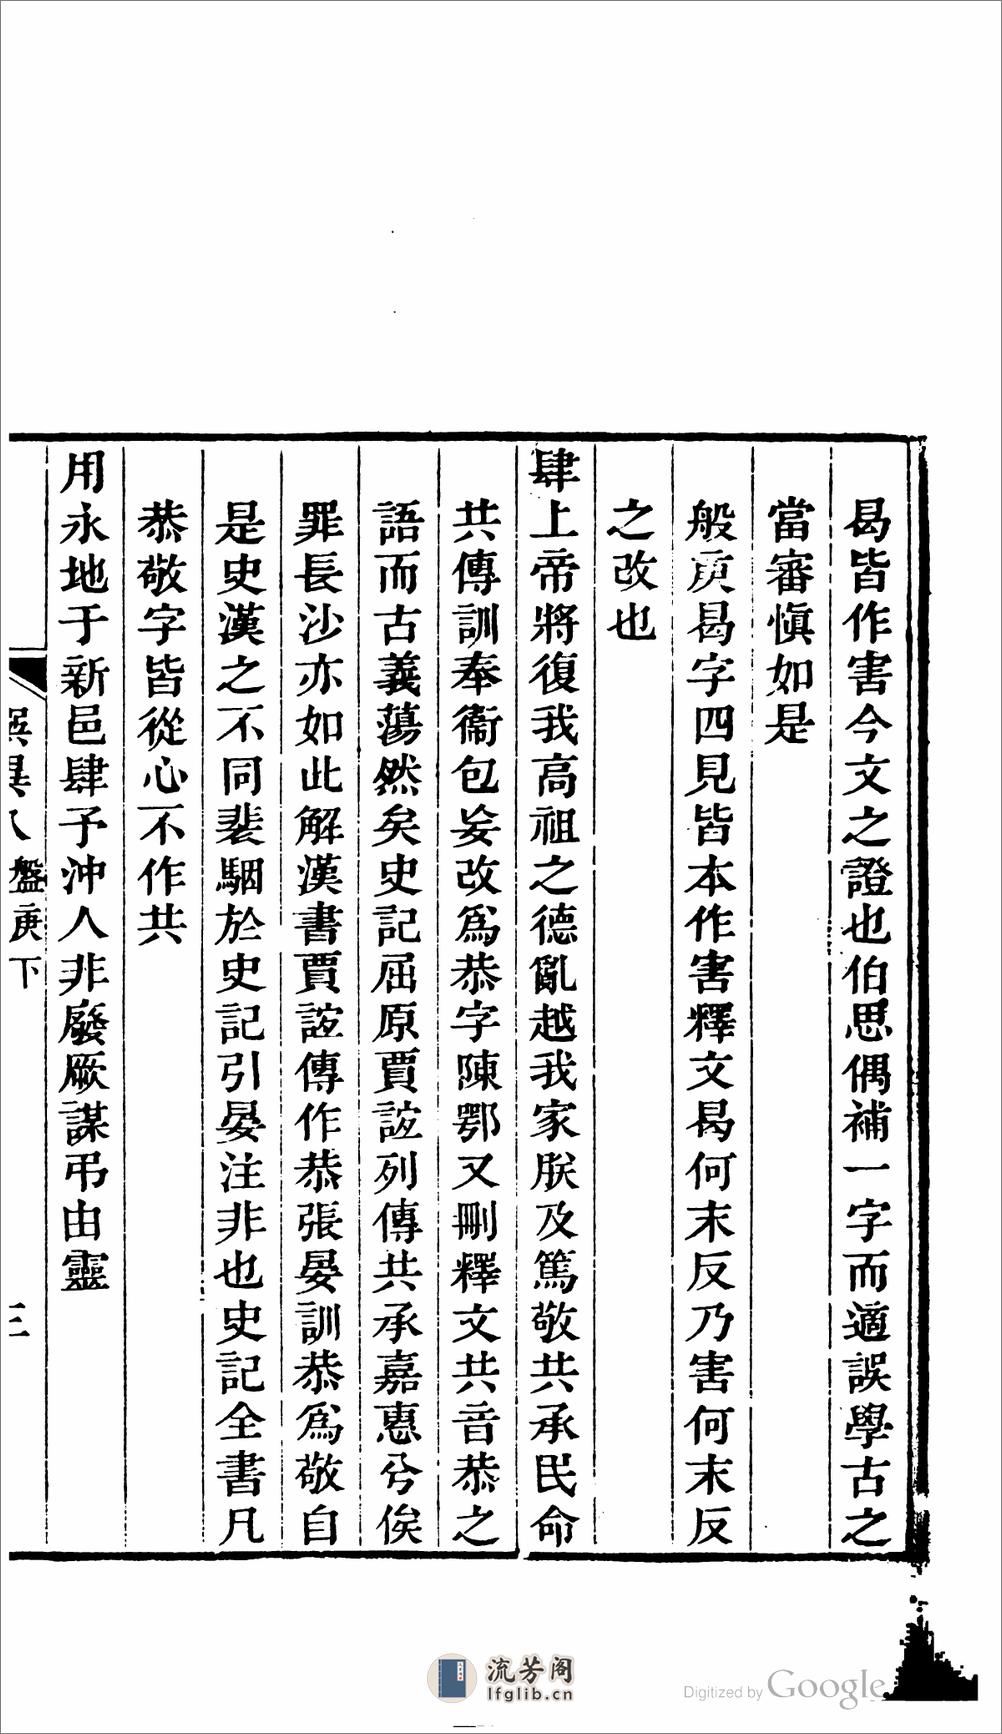 曷皆作害今文之證也伯思偶補一字而適誤學古之
當審愼如是
般庚曷字四見皆本作害釋文曷何末反乃害何末反
之改也
肆上帝將復我高祖之德亂越我家朕及篤敬共承民命
共傳訓奉衞包妄改爲恭字陳鄂又刪釋文共音恭之
語而古義蕩然矣史記屈原賈誼列傳共承嘉惠兮俟
罪長沙亦如此解漢書賈誼傳作恭張晏訓恭爲敬自
是史漢之不同裴駰於史記引晏注非也史記全書凡
恭敬字皆從心不作共
用永地于新邑肆予沖人非廢厥謀弔由靈
異八 盤庚下 三
流芳阁
lfglib.cn
Digitized by Google